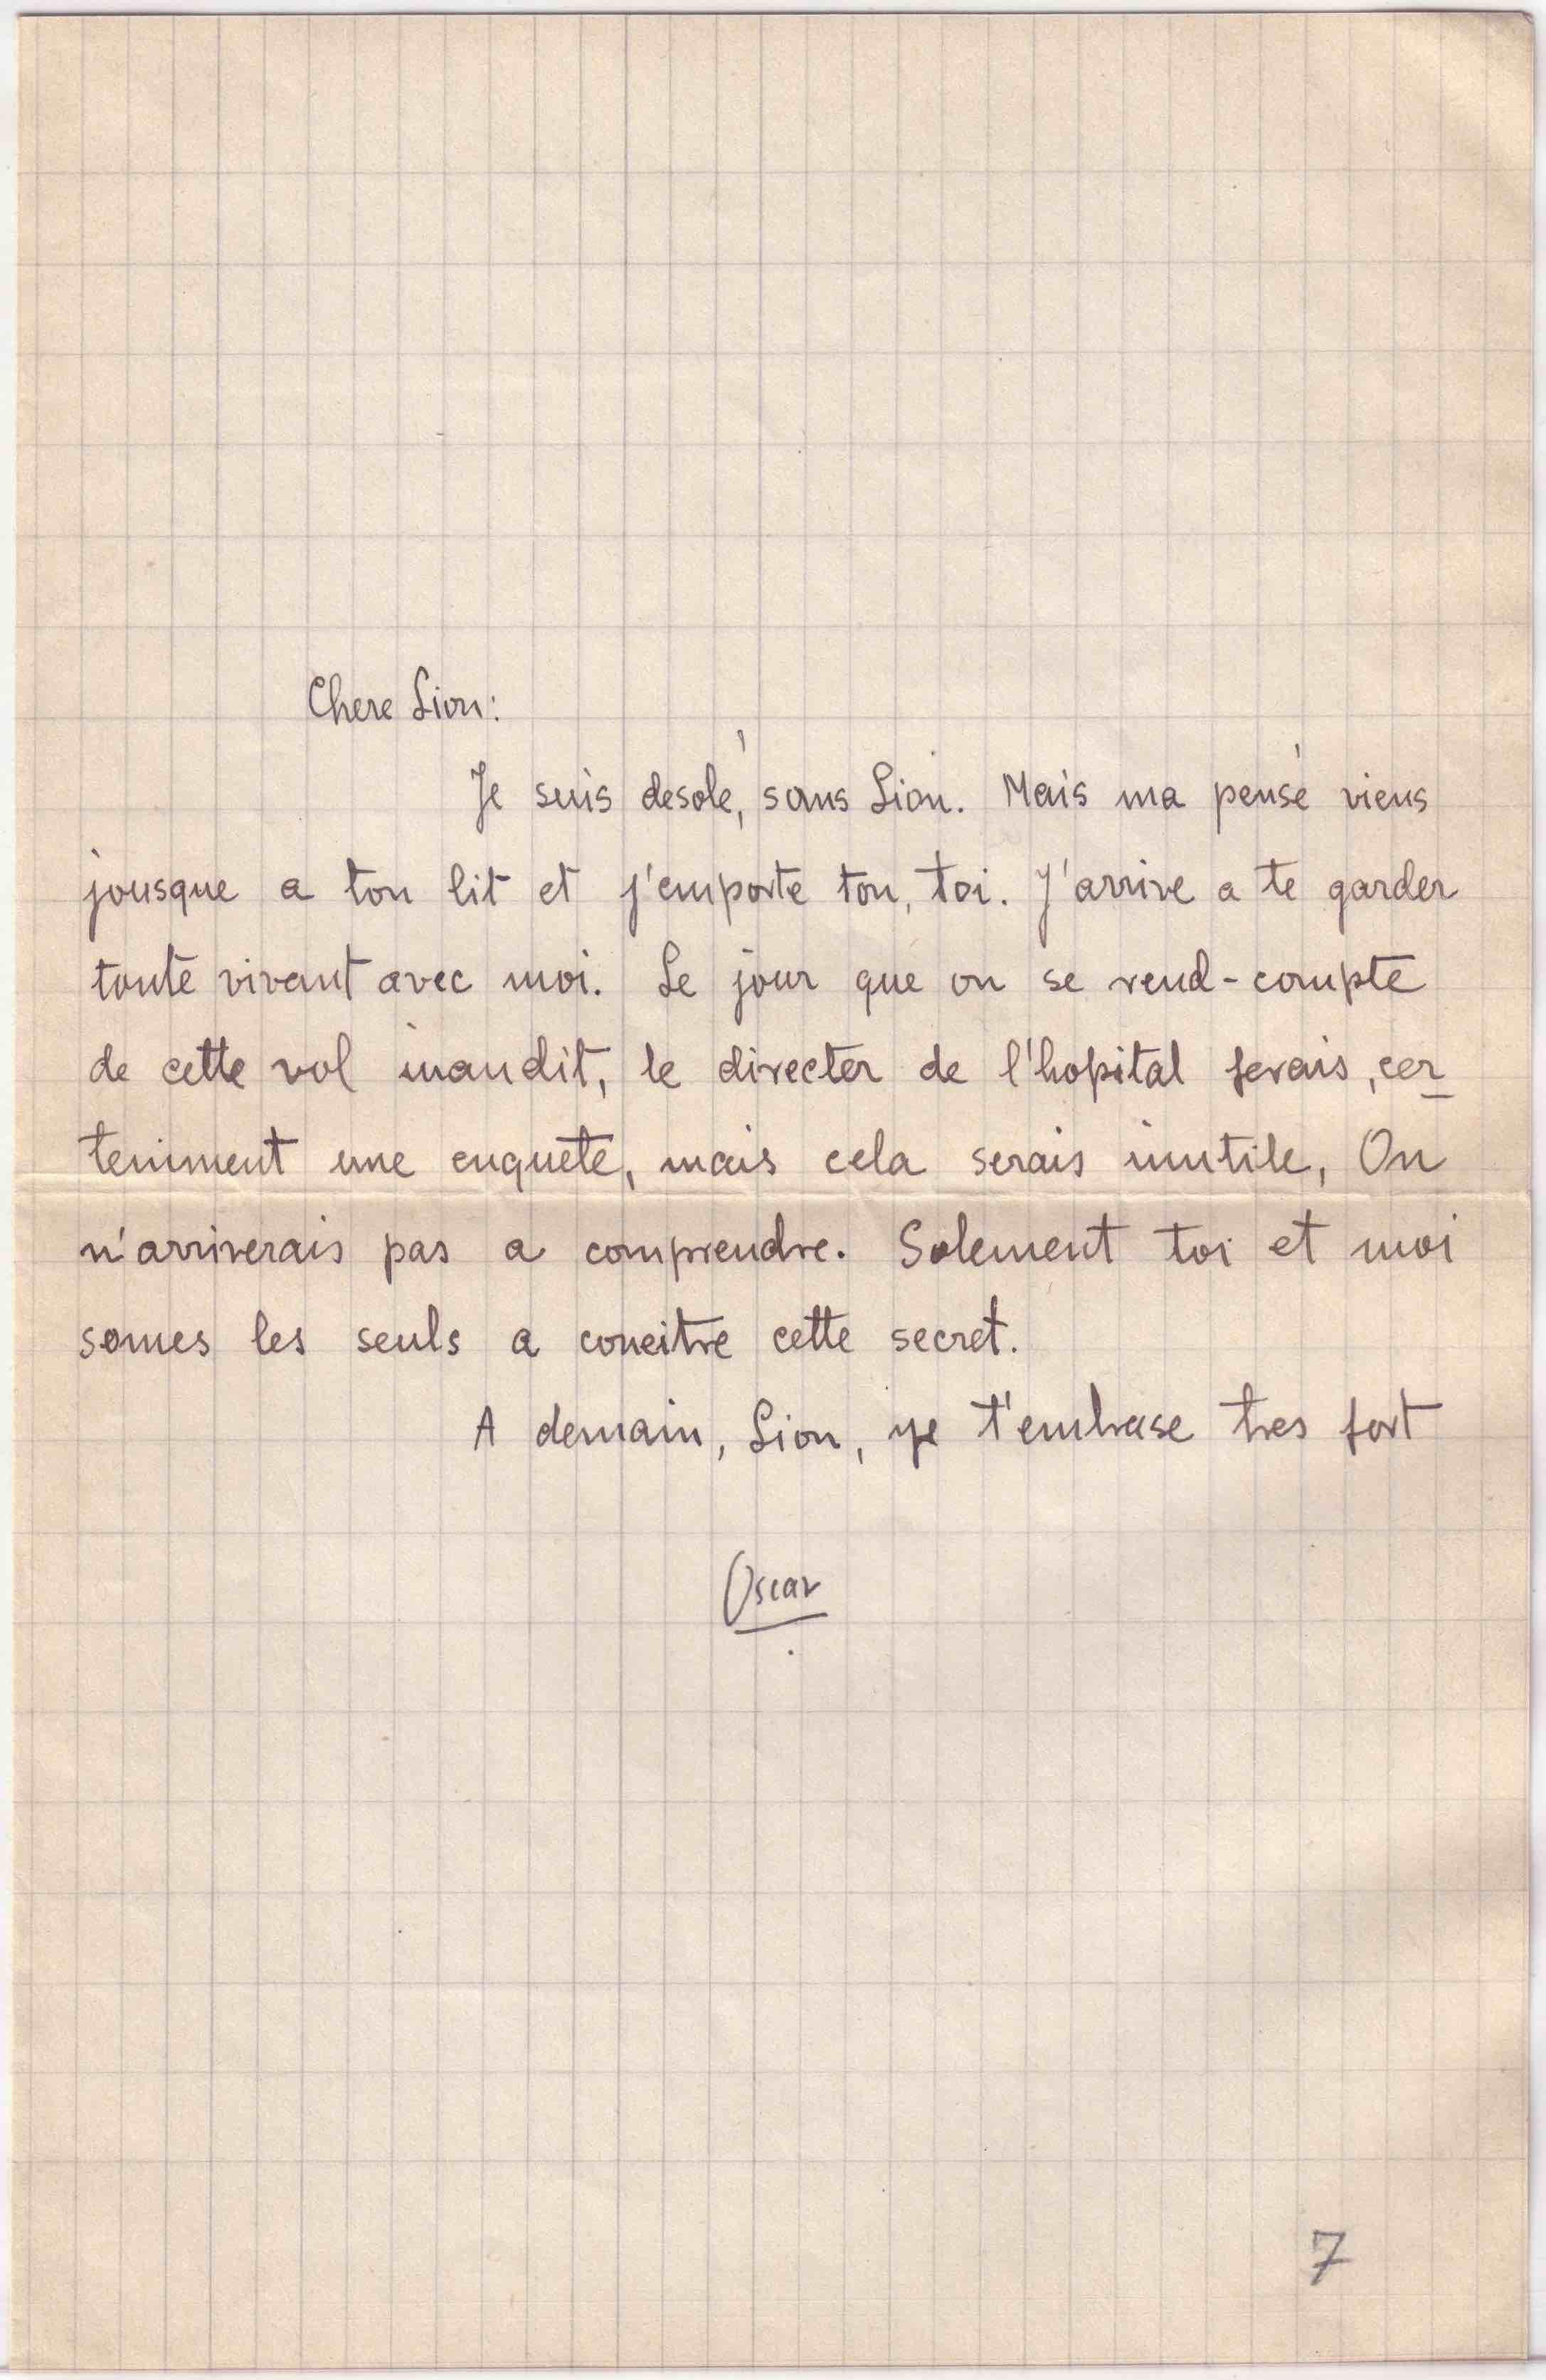 Chere Lion:
Je suis desolé, sans Lion. Mais ma pensé viens
jousque a ton lit et j'emporte ton, toi. J'arrive a te garder
toute vivant avec moi. Le jour que on se rend-compte
de cette vol inaudit, le director de l'hopital ferais, cer
teniment une enquete, mais cela serais inutile, On
n'arriverais pas a comprendre. Solement toi et moi
somes les seuls a coneitre cette secret.
A demain, Lion, ye t'embrase tres fort
Oscar
7